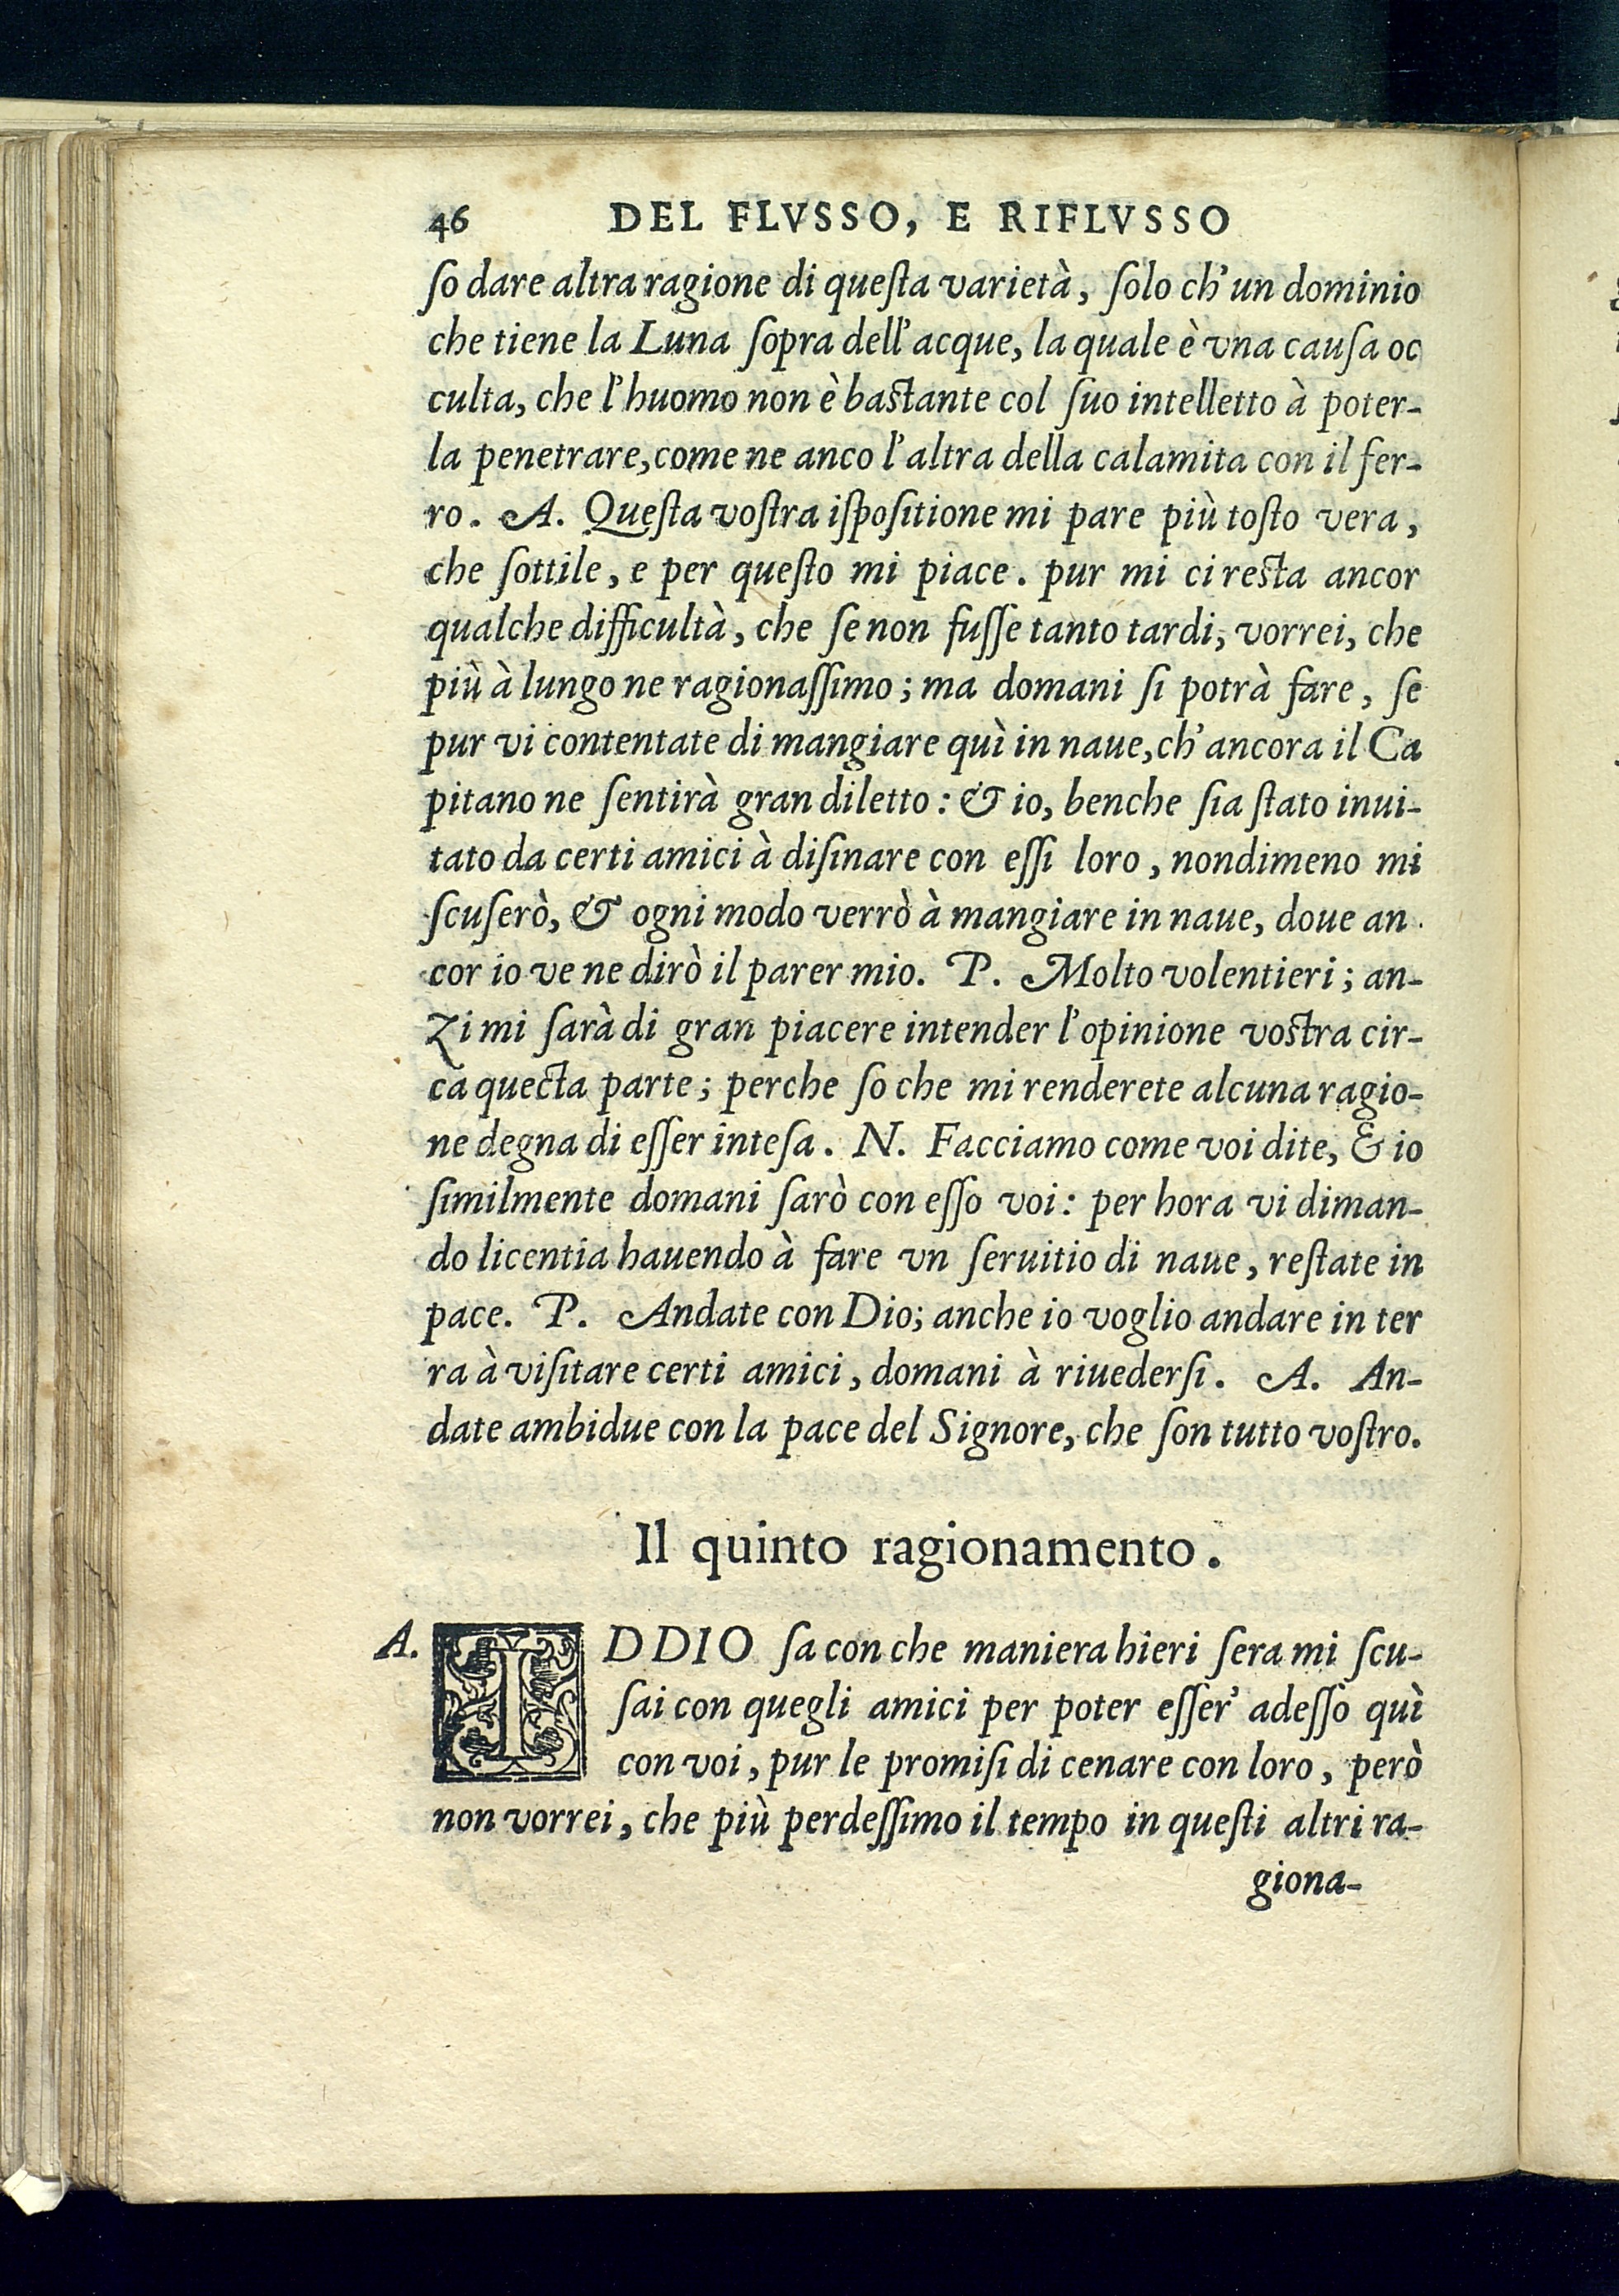 46 DEL FLVSSO, E RIFLVSSO
ſo dare altra ragione di queſta varietà, ſolo ch'un dominio
che tiene la Luna ſopra dell'acque, la quale è vna cauſa oc
culta, che l'huomo non è baſtante col ſuo intelletto à poter-
la penetrare, come ne anco l'altra della calamita con il fer-
ro. A. Queſta voſtra iſpoſitione mi pare più toſto vera,
che ſottile, e per queſto mi piace. pur mi ci reſta ancor
qualche difficultà, che ſe non fuſſe tanto tardi, vorrei, che
più à lungo ne ragionaſſimo; ma domani ſi potrà fare, ſe
pur vi contentate di mangiare quì in naue, ch'ancora il Ca
pitano ne ſentirà gran diletto: & io, benche ſia ſtato inui-
tato da certi amici à diſinare con eſſi loro, nondimeno mi
ſcuſerò, & ogni modo verrò à mangiare in naue, doue an
cor io ve ne dirò il parer mio. P. Molto volentieri; an-
zi mi ſarà di gran piacere intender l'opinione voſtra cir-
ca quecta parte; perche ſo che mi renderete alcuna ragio-
ne degna di eſſer inteſa. N. Facciamo come voi dite, & io
ſimilmente domani ſarò con eſſo voi: per hora vi diman-
do licentia hauendo à fare vn ſeruitio di naue, reſtate in
pace. P. Andate con Dio; anche io voglio andare in ter
ra à viſitare certi amici, domani à riuederſi. A. An-
date ambidue con la pace del Signore, che ſon tutto voſtro.
Il quinto ragionamento.
A. IDDIO ſa con che maniera hieri ſera mi ſcu-
ſai con quegli amici per poter eſſer' adeſſo quì
con voi, pur le promiſi di cenare con loro, però
non vorrei, che più perdeſſimo il tempo in queſti altri ra-
giona-